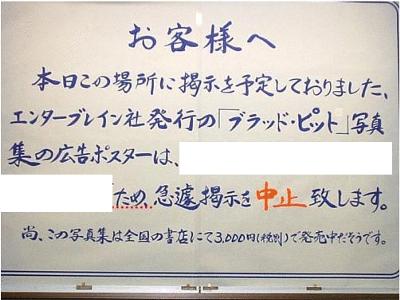 お客様へ
本日この場所に掲示を予定しておりました、
エンターブレイン社発行の「ブラッド・ピット」写真
集の広告ポスターは、
ため、急遽掲示を中止致します。
尚、この写真集は全国の書店にて3,000円(税別)で発売中だそうです。